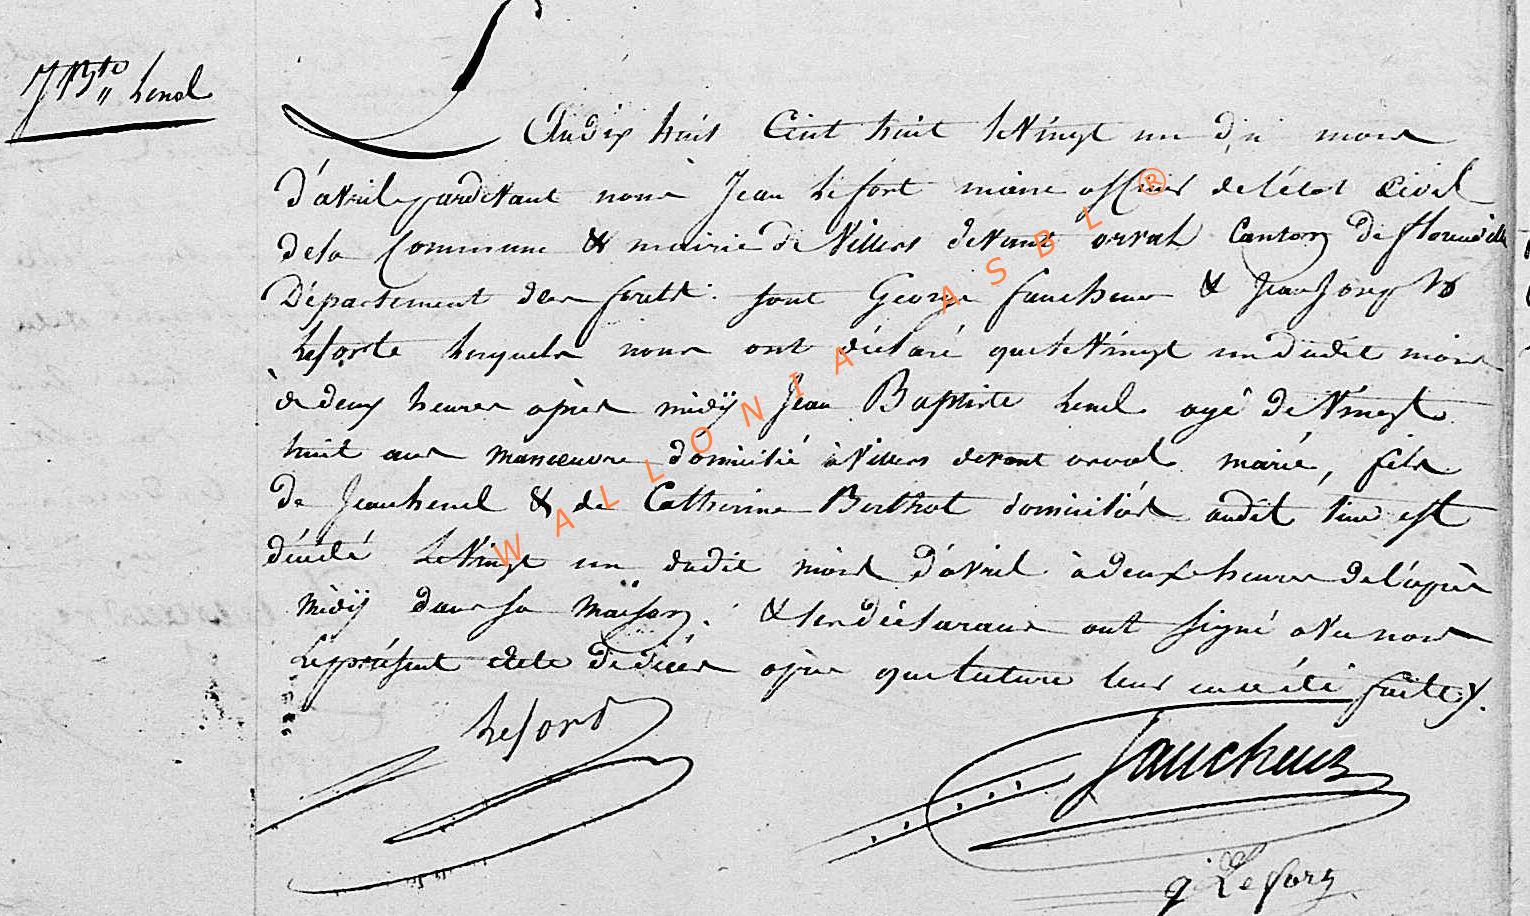 J Bte henel
L'An dix huit Cent huit le Vingt un du mois
d'avril pardevant nous Jean Lefort maire officier de l'état Civil
de la Commune & mairie de Villers devant orval Canton de florenville
Département des forets. sont George faucheux & Jean Joseph
Leforte lesquels nous ont déclaré que le Vingt un dudit mois
à deux heures après midÿ Jean Baptiste henel agé de Vingt
huit ans manoeuvre domicilié à Villers devant orval marié, fils
de Jean henel & de Catherine Berthot domiciliés audit lieu est
décédé Le Vingt un dudit mois d'avril à deux heures de l'après
midÿ dans sa maison. & les déclarans ont signé avec nous
Le présent acte de décès après que lecture leur en a été faite
Lefort
faucheux
j Lefort
WALLONIA ASBL ®